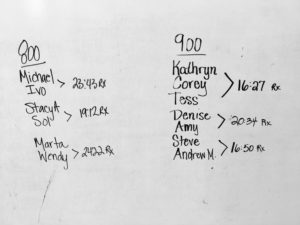 800
Michael
Ivo > 23:43 Rx
Stacy A
Sol > 19:12 Rx
Marta
Wendy > 24:22 Rx
900
Kathryn
Corey > 16:27 Rx
Tess
Denise
Amy > 20:34 Rx
Steve
Andrew M. > 16:50 Rx